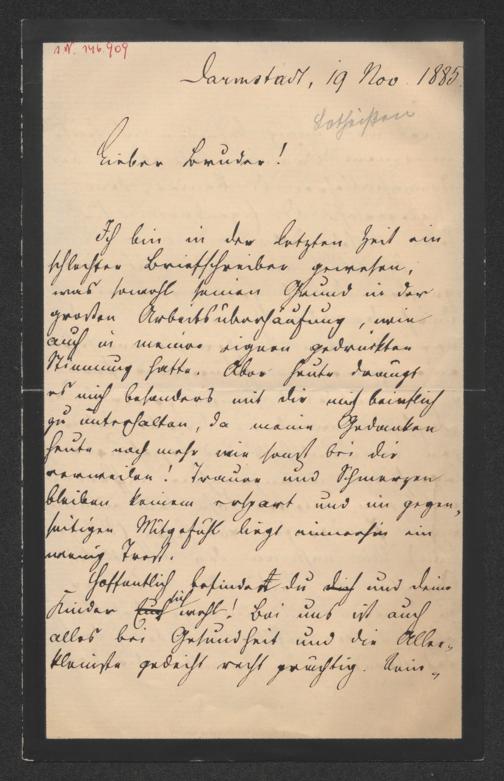 I.N. 146.909
Darmstadt, 19 Nov. 1885.
Lotheißen
Lieber Bruder!
Ich bin in der letzten Zeit ein
schlechter Briefschreiber gewesen,
was sowohl seinen Grund in der
großen Arbeitsüberhäufung, wie
auch in meiner eignen gedrückten
Stimmung hatte. Aber heute drängt
es mich besonders mit dir mich brieflich
zu unterhalten, da meine Gedanken
heute noch mehr wie sonst bei dir
verweilen! Trauer und Schmerzen
bleiben keinem erspart und im gegen-
seitigen Mitgefühl liegt immerhin ein
wenig Trost.
Hoffentlich befindest du dich und deine
Kinder sich wohl! Bei uns ist auch
alles bei Gesundheit und die Aller-
kleinste gedeiht recht prächtig.